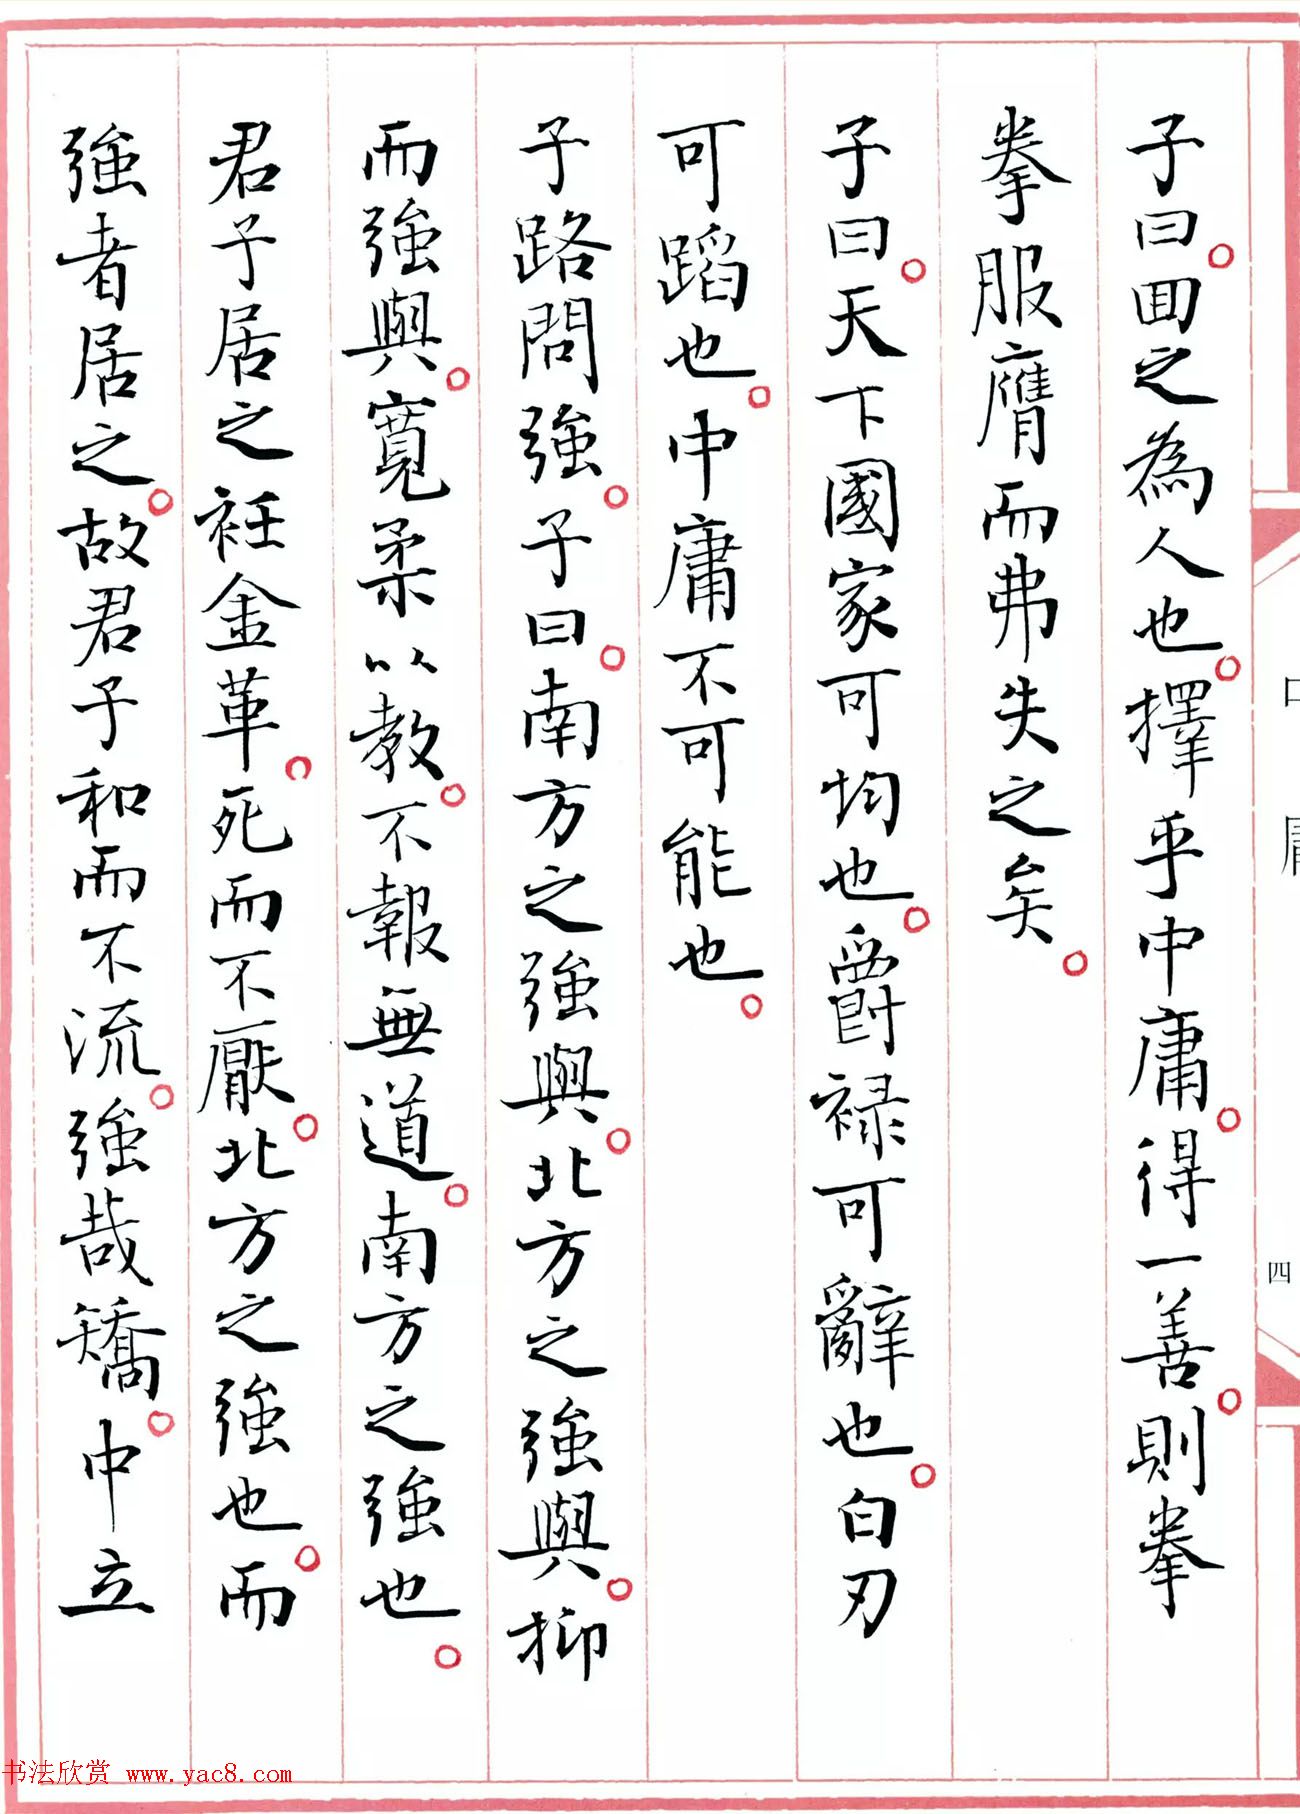 子曰。回之為人也。擇乎中庸。得一善。則拳
拳服膺而弗失之矣。
子曰。天下國家可均也。爵祿可辭也。白刃
可蹈也。中庸不可能也。
子路問強。子曰。南方之強與。北方之強與。抑
而強與。寬柔以教。不報無道。南方之強也。
君子居之衽金革。死而不厭。北方之強也。而
強者居之。故君子和而不流。強哉矯。中立
中庸
四
书法欣赏 www.yac8.com